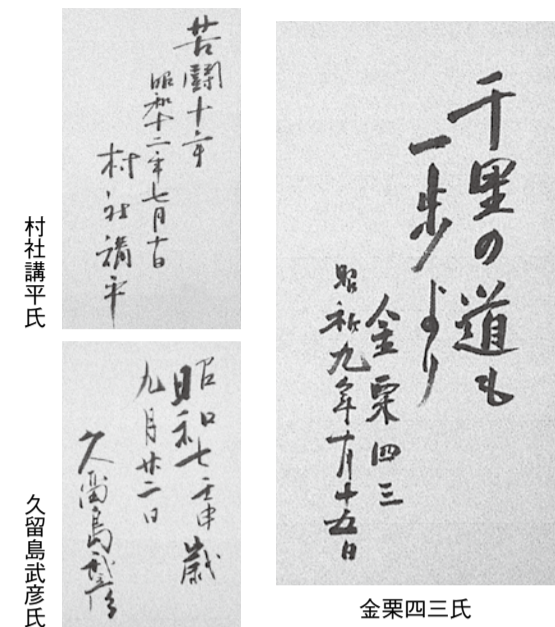 千里の道も
一歩より
金栗四三
昭和九年十月十五日
金栗四三氏
苦闘十年
昭和十二年七月十日
村社講平
村社講平氏
昭和七壬申歳
九月廿二日
久留島武彦
久留島武彦氏